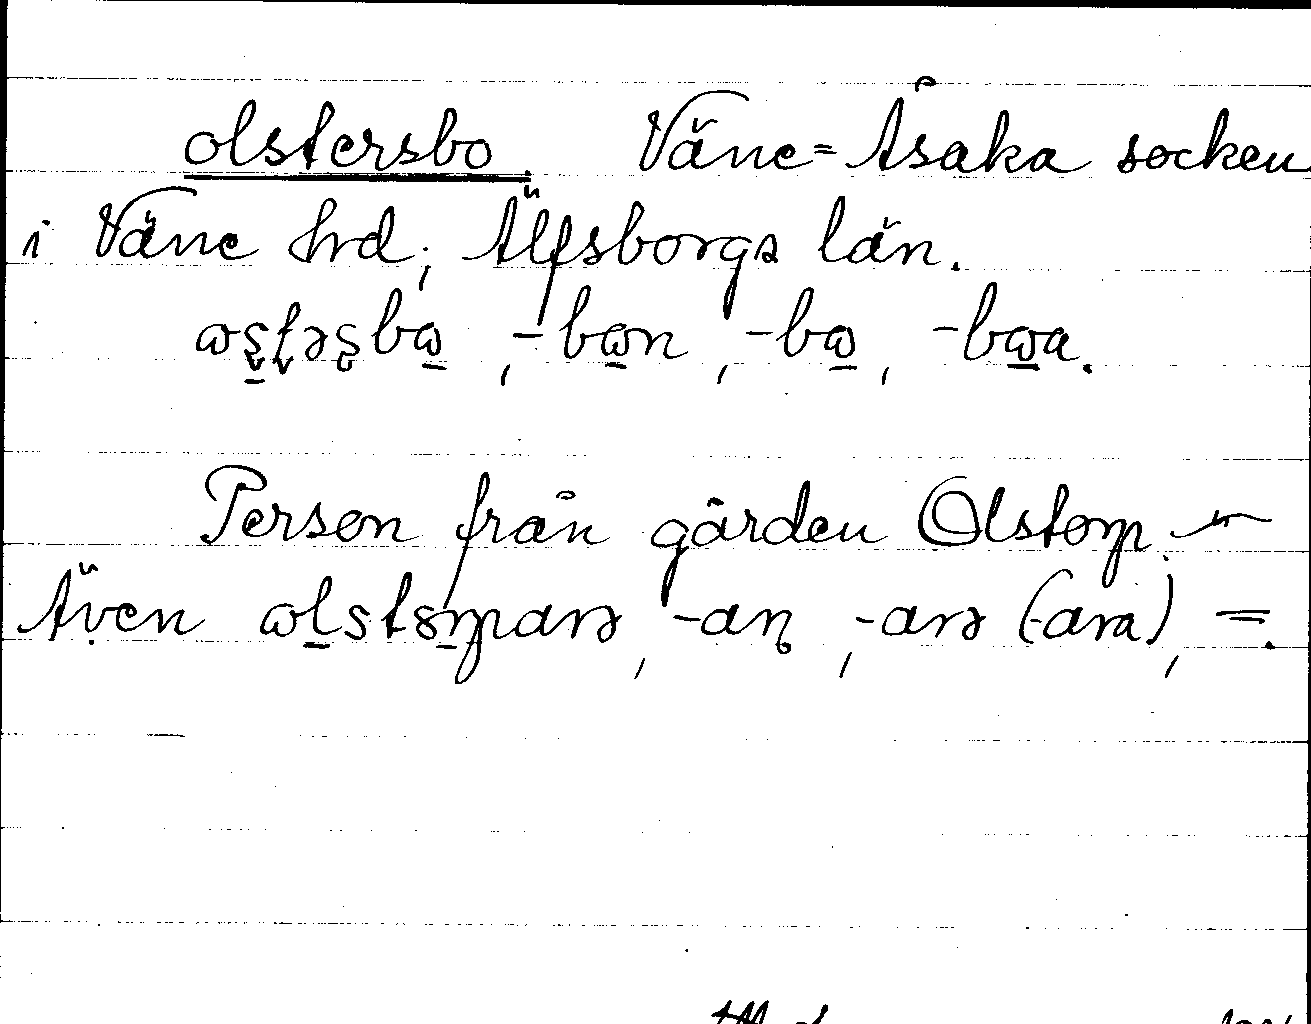 olstersbo Väne-Åsaka socken
i Väne hrd, Älfsborgs län.
ωʂʈəʂbω, -bωn, -bω, -bωa.
Person från gården Olstorp. —
Även ωlstɞrparə, -aɳ, -arə (-ara), =.